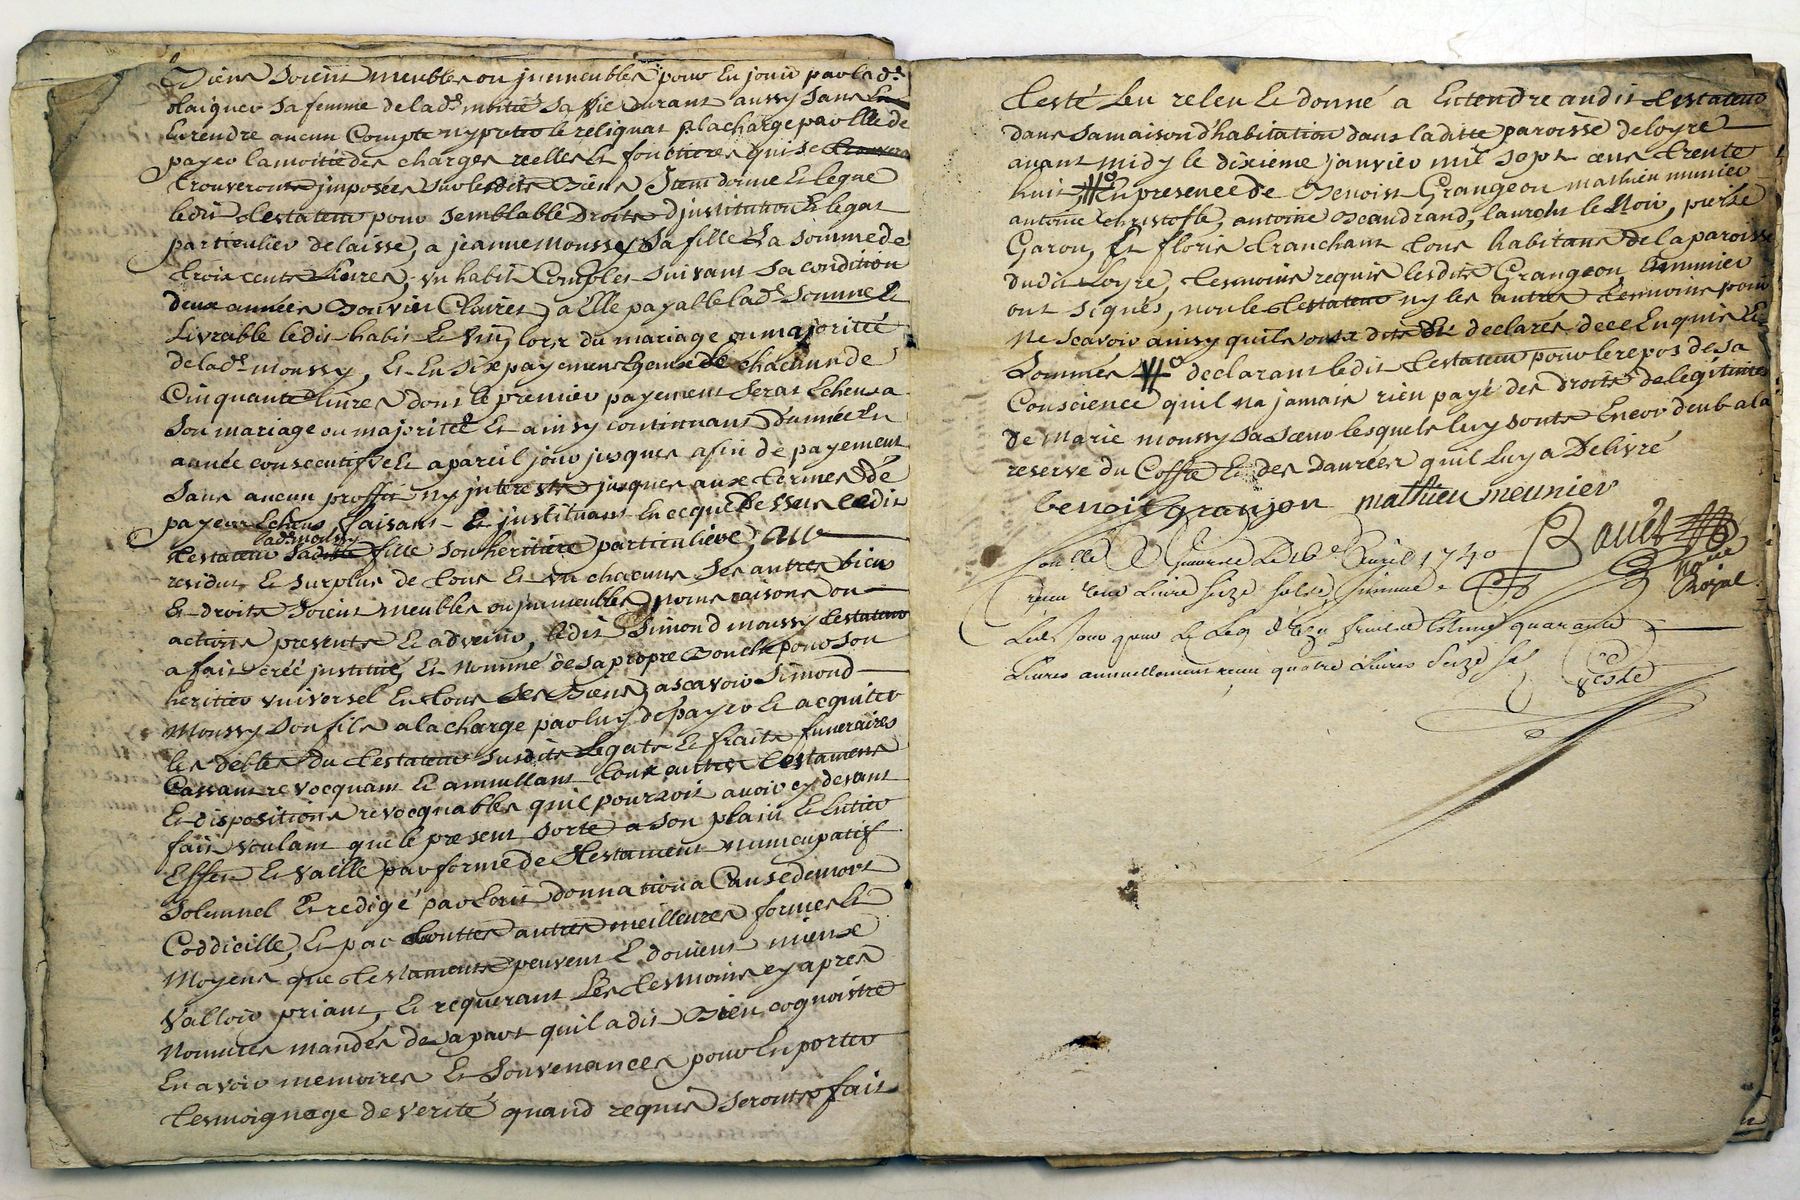 Biens soient meubles ou jmmeubles pour En jouir par lad.e
olaignier sa femme de lad.e moitié sa vie durant aussy sans En
En rendre aucun Compte ny preter le reliquat a la charge par elle de
payer la moitié des charges reelles Et fonctieres qui se trouvero
trouveronts jmposées sur lesdits Biens Jtem donne Et legue
ledit testateur pour semblable Droits djnstitution Et legat
particulier delaisse, a jeanne Moussy sa fille La somme de
trois cents Livres, un habit Complet suivant sa condition
deux années Bon vin Claires, a Elle payable lad.e somme Et
Livrable ledit habit Et vin, lors du mariage ou majorité
de lad.e moussy, Et En six payements de chacun de
Cinquante Livres dont le premier payement serat Echeu a
son mariage ou majorité Et ainsy continuant d'année En
année consecutifve Et a pareil jour jusques a fin de payement
sans aucun proffit ny jnterests jusques aux termes de
payeur Echeus, faisant Et jnstituant En ce que Dessus ledit
lad.e moussy
testateur sadite fille son heritiere particuliere, Au
residut Et surplus de tous Et un chacuns ses autres bien
Et droits soient meubles ou jmmeubles, noms raisons ou
actions presents Et advenir, ledit Simond moussy testateur
a fait créé jnstitué, Et Nommé de sa propre Bouche pour son
heritier universel En tous ses Biens, ascavoir Simond
Moussy son fils a la charge par luy de payer Et acquiter
les debtes du testateur susdits Legats Et fraits funeraires
Cassant revocquant Et annullant tous autres testaments
Et dispositions revocquables quil pourroit avoir cy devant
fait voulant que le present sorte a son plain Et Entier
Effet Et vaille par forme de testament nuncupatif
Solennel Et redigé par Ecrit donnation a Cause de mort
Coddicille, Et par touttes autres meilleures formes Et
Moyens que testaments peuvent Et doivent mieux
valloir priant, Et requerant Les tesmoins cy apres
Nommés mandés de sa part quil a dit Bien cognoistre
En avoir memoires Et souvenances pour En porter
tesmoignage de verité quand requis seronts fait
testé Leu releu Et donné a Entendre audit testateur
dans sa maison d'habitation dans ladite paroisse de loyre
avant midy le dixieme janvier mil sept cens trente
huit En presence de Benoist Grangeon mathieu munier
antoine christofle, antoine Beaudrand, laurent le Noir, pierre
Garon, Et floris tranchant tous habitans de la paroisse
dudit Loyre, tesmoins requis lesdits Grangeon, Et munier
ont signés, non le testateur ny les autres tesmoins pour
ne scavoir ainsy quils onts dits Et declarés de ce Enquis Et
Sommés declarant ledit testateur pour le repos de sa
Conscience quil na jamais rien payé des droits de legitimes
de marie moussy sa soeur lesquels luy sonts Encor deub a la
reserve du Coffre Et des Daurées quil Luy a Delivré
benoit granjon mathieu meunier
Bouët
no.re
Royal
avril 1740
reçeu Livre seize sols
Led. jour pour Le Leg Estimé quarante
Livres annuellement receu quatre Livres seize sol